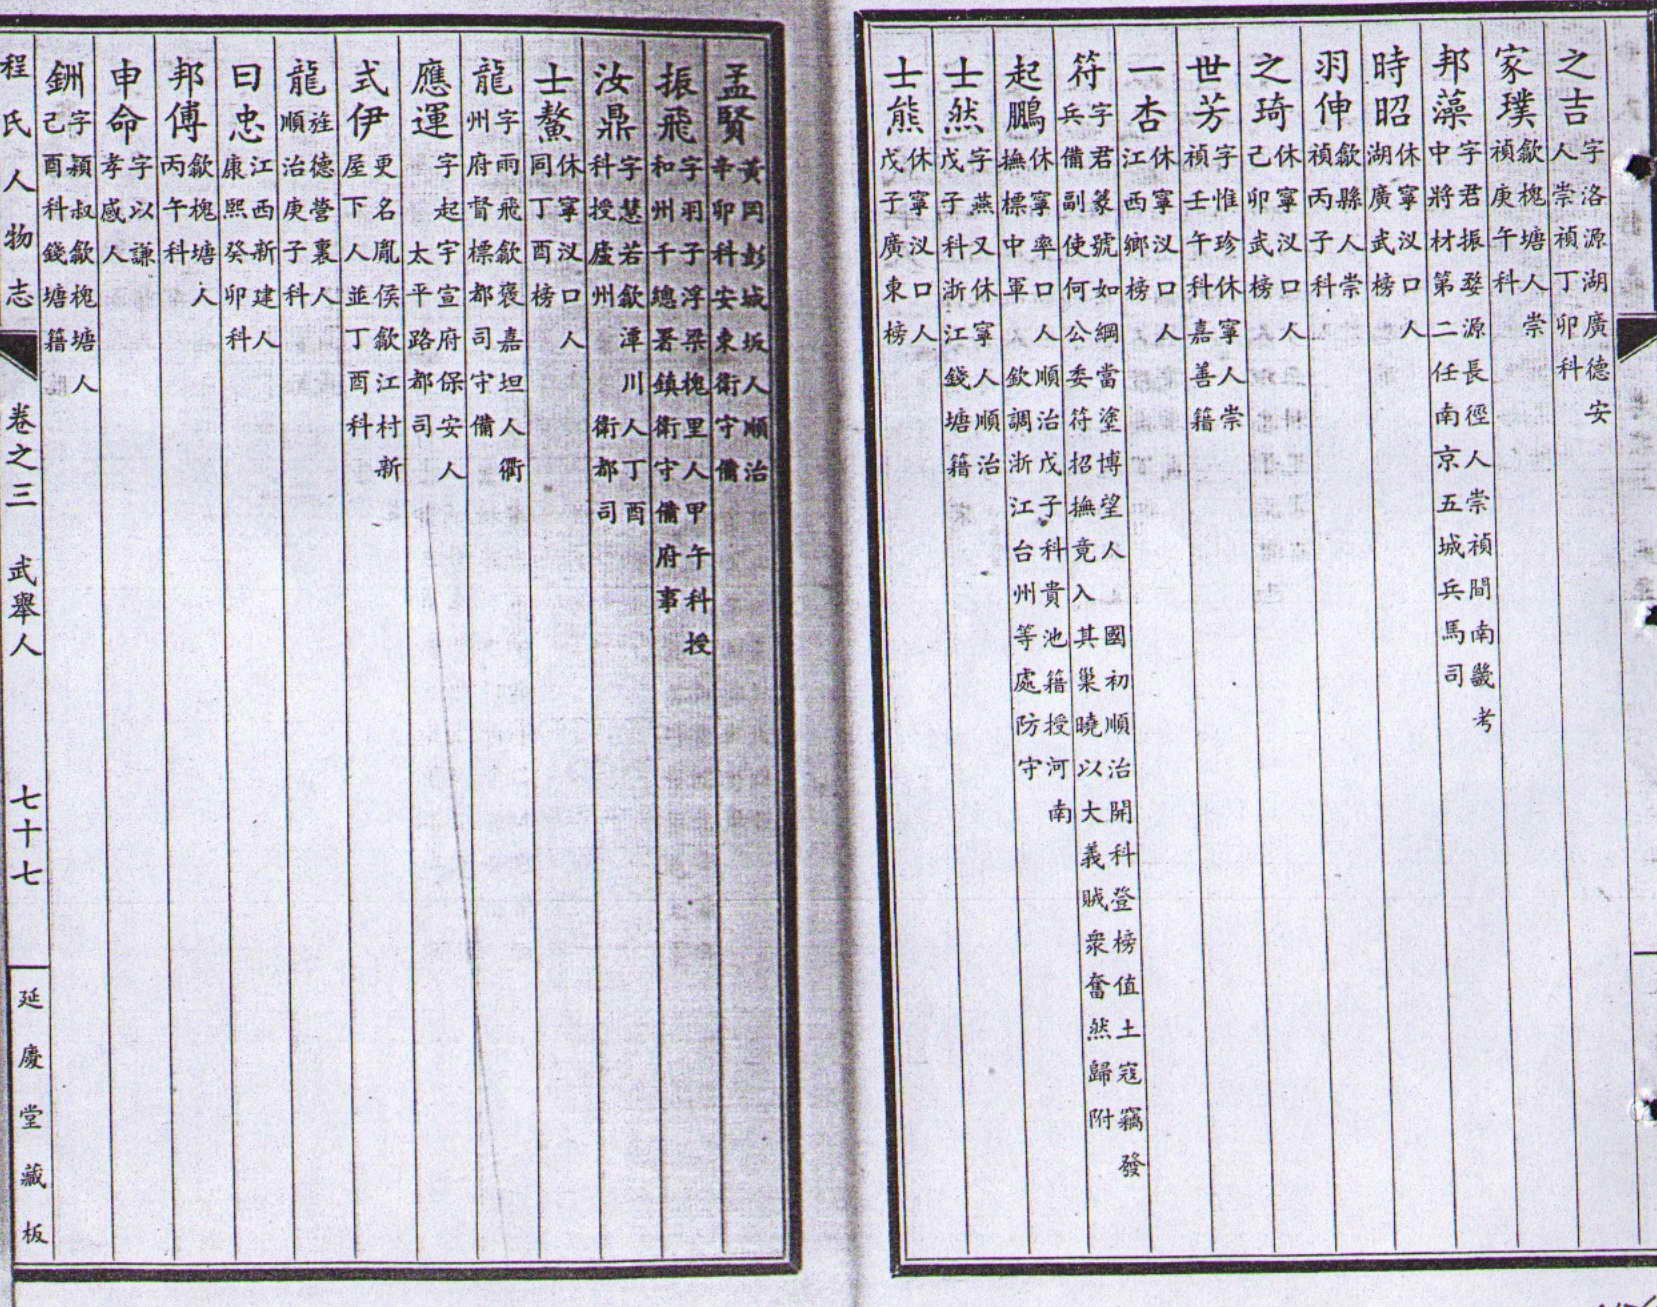 之吉 字洛源湖廣德安人崇禎丁卯科
家璞 歙槐塘人崇禎庚午科
邦藻 字君振婺源長徑人崇禎間南畿考中將材第二任南京五城兵馬司
時昭 休寧汊口人湖廣武榜
羽伸 歙縣人崇禎丙子科
之琦 休寧汊口人己卯武榜
世芳 字惟珍休寧人崇禎壬午科嘉善籍
一杏 休寧汊口人江西鄉榜
符 字君篆號如綱當塗博望人國初順治開科登榜值土寇竊發兵備副使何公委符招撫竟入其巢曉以大義賊衆奮然歸附
起鵬 休寧率口人順治戊子科貴池籍授河南撫標中軍欽調浙江台州等處防守
士然 字燕又休寧人順治戊子科浙江錢塘籍
士熊 休寧汊口人戊子廣東榜
孟賢 黃岡彭城坂人順治辛卯科安東衛守備
振飛 字羽子浮梁槐里人甲午科授和州千總署鎮衛守備府事
汝鼎 字慧若歙潭川人丁酉科授廬州衛都司
士鰲 休寧汊口人同丁酉榜
龍 字雨飛歙褒嘉坦人衢州府督標都司守備
應運 字起宇宣府保安人太平路都司
式伊 更名胤侯歙江村新屋下人並丁酉科
龍 旌德營裏人順治庚子科
曰忠 江西新建人康熙癸卯科
邦傅 歙槐塘人丙午科
申命 字以謙孝感人
釧 字穎叔歙槐塘人己酉科錢塘籍
程氏人物志 卷之三 武舉人 七十七 延慶堂藏板